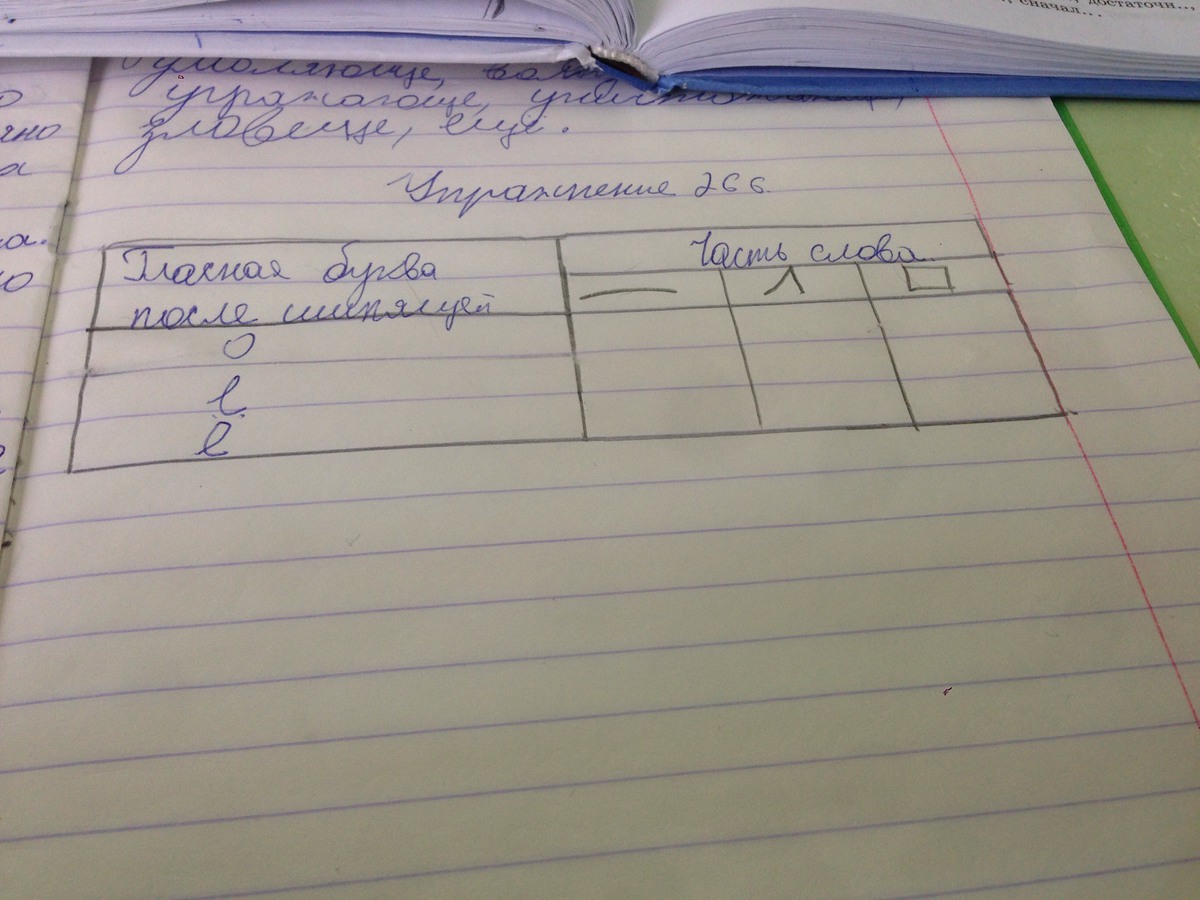 достаточн...,
сначал...
умоляюще,
угрожающе,
зловеще, еще.
Упражнение 266.
Гласная буква
после шипящей
Часть слова
о
е
ё